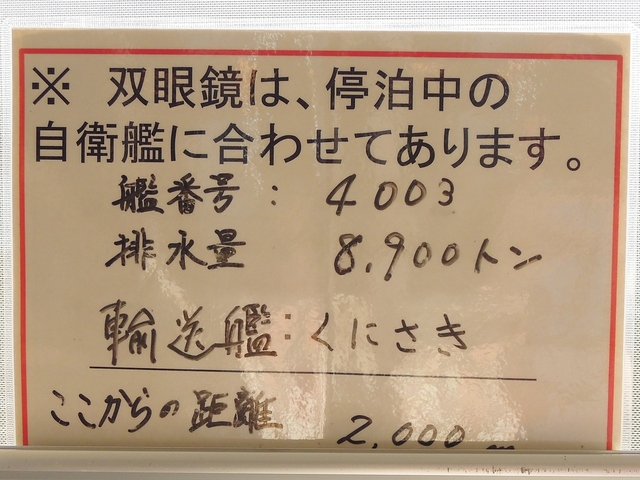 ※ 双眼鏡は、停泊中の
自衛艦に合わせてあります。
艦番号: 4003
排水量 8,900トン
輸送艦:くにさき
ここからの距離
2,000m